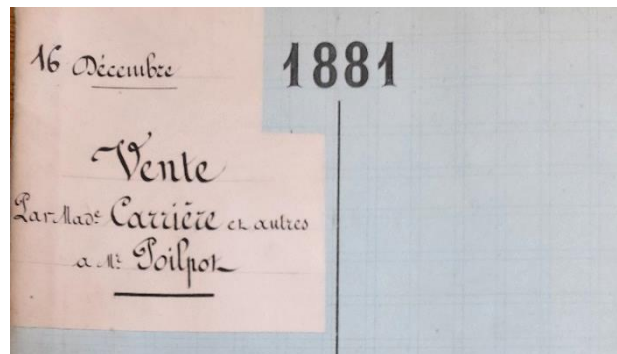 16 Décembre
1881
Vente
Par Made Carrière et autres
a Mr Poilpot